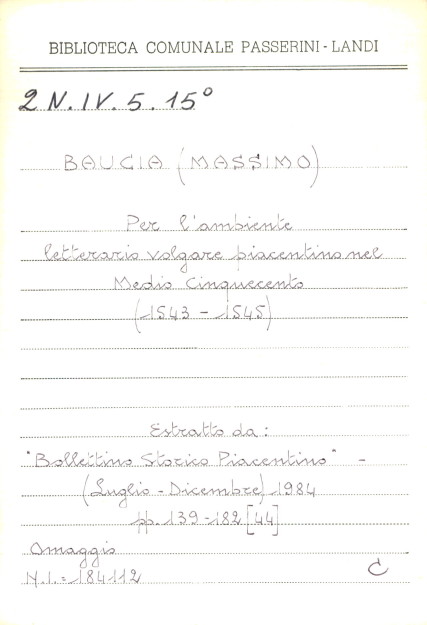 BIBLIOTECA COMUNALE PASSERINI-LANDI
2 N.IV.5.15°
BAUCIA (MASSIMO)
Per l'ambiente
letterario volgare piacentino nel
Medio Cinquecento
(1543-1545)
Estratto da:
"Bollettino Storico Piacentino" -
(Luglio-Dicembre) 1984
pp. 139-182 [44]
Omaggio
N.I.=184112
C